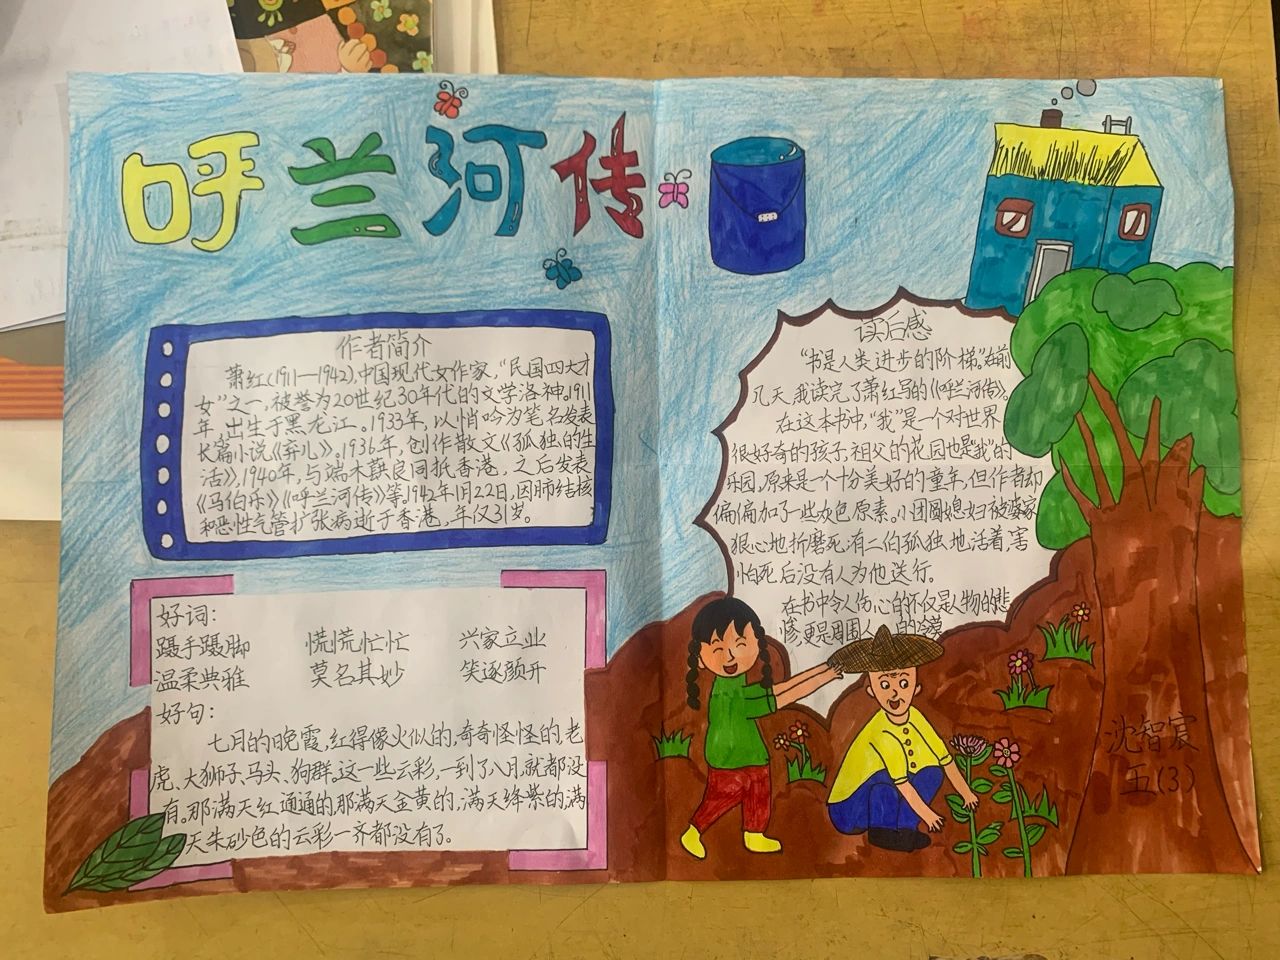 呼兰河传
作者简介
萧红(1911—1942),中国现代女作家,“民国四大才
女”之一,被誉为20世纪30年代的文学洛神。1911
年,出生于黑龙江。1933年,以悄吟为笔名发表
长篇小说《弃儿》。1936年,创作散文《孤独的生
活》,1940年,与端木蕻良同抵香港,之后发表
《马伯乐》《呼兰河传》等。1942年1月22日,因肺结核
和恶性气管扩张病逝于香港,年仅31岁。
好词:
蹑手蹑脚 慌慌忙忙 兴家立业
温柔典雅 莫名其妙 笑逐颜开
好句:
七月的晚霞,红得像火似的,奇奇怪怪的老
虎、大狮子、马头、狗群。这一些云彩,一到了八月,就都没
有。那满天红通通的,那满天金黄的,满天绛紫的,满
天朱砂色的云彩一齐都没有了。
读后感
“书是人类进步的阶梯。”在前
几天,我读完了萧红写的《呼兰河传》。
在这本书中,“我”是一个对世界
很好奇的孩子,祖父的花园也是“我”的
乐园,原来是一个十分美好的童年,但作者却
偏偏加了一些灰色原素。小团圆媳妇被婆家
狠心地折磨死,有二伯孤独地活着,害
怕死后没有人为他送行。
在书中令人伤心的不仅是人物的悲
惨,更是周围人的冷漠
沈智宸
五(3)